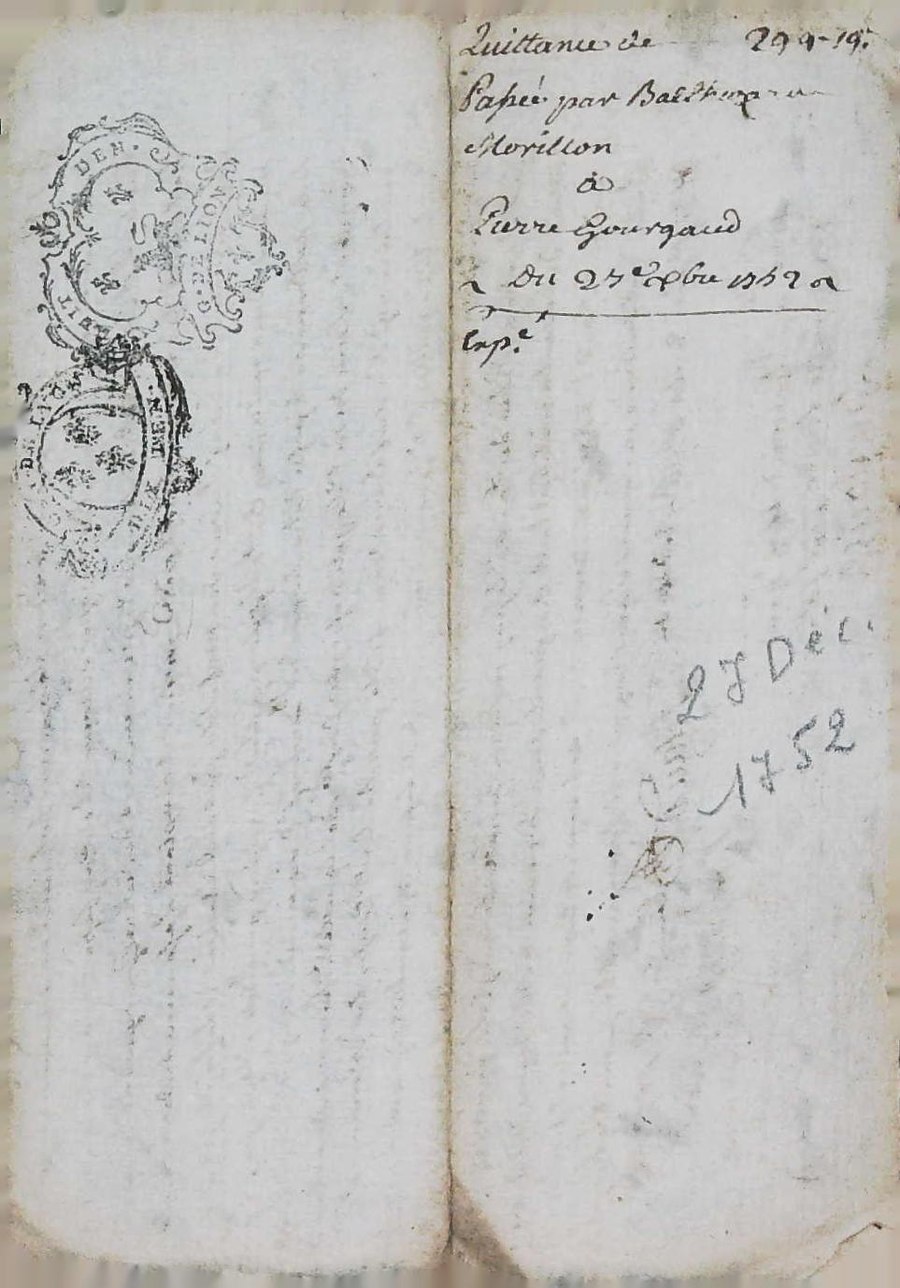 Quittance de 299 - 19ˢ
Passée par Balthazard
Morillon
à
Pierre Gourgaud
Du 27ᵉ Xbre 1752
Expᵉ
27 Déc.
1752
DEN.
G. DE LION
PETIT
DE LION
DIX DEN.